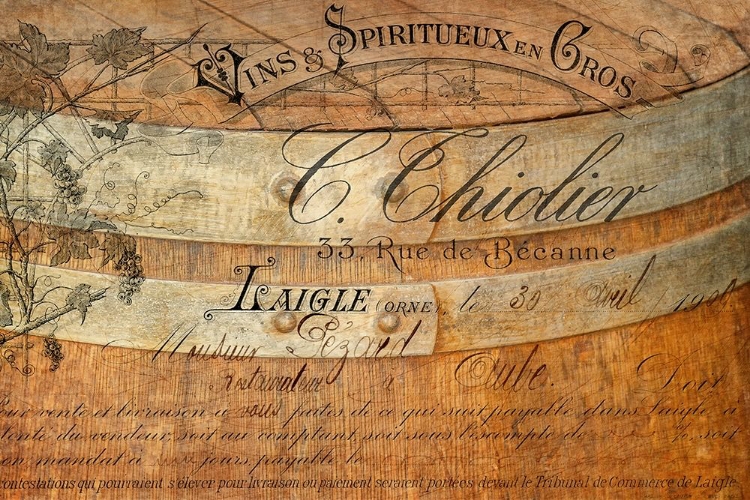 Vins & Spiritueux en Gros
C. Thiolier
33, Rue de Bécanne
Laigle (Orne), le 30 Avril
Monsieur Gézard
restaurateur à Aube. Doit
Pour vente et livraison à vous faites de ce qui suit payable dans Laigle à
tenté du vendeur, soit au comptant, soit sous l'escompte de %, soit
on mandat à jours, payable le
contestations qui pourraient s'élever pour livraison ou paiement seraient portées devant le Tribunal de Commerce de Laigle.